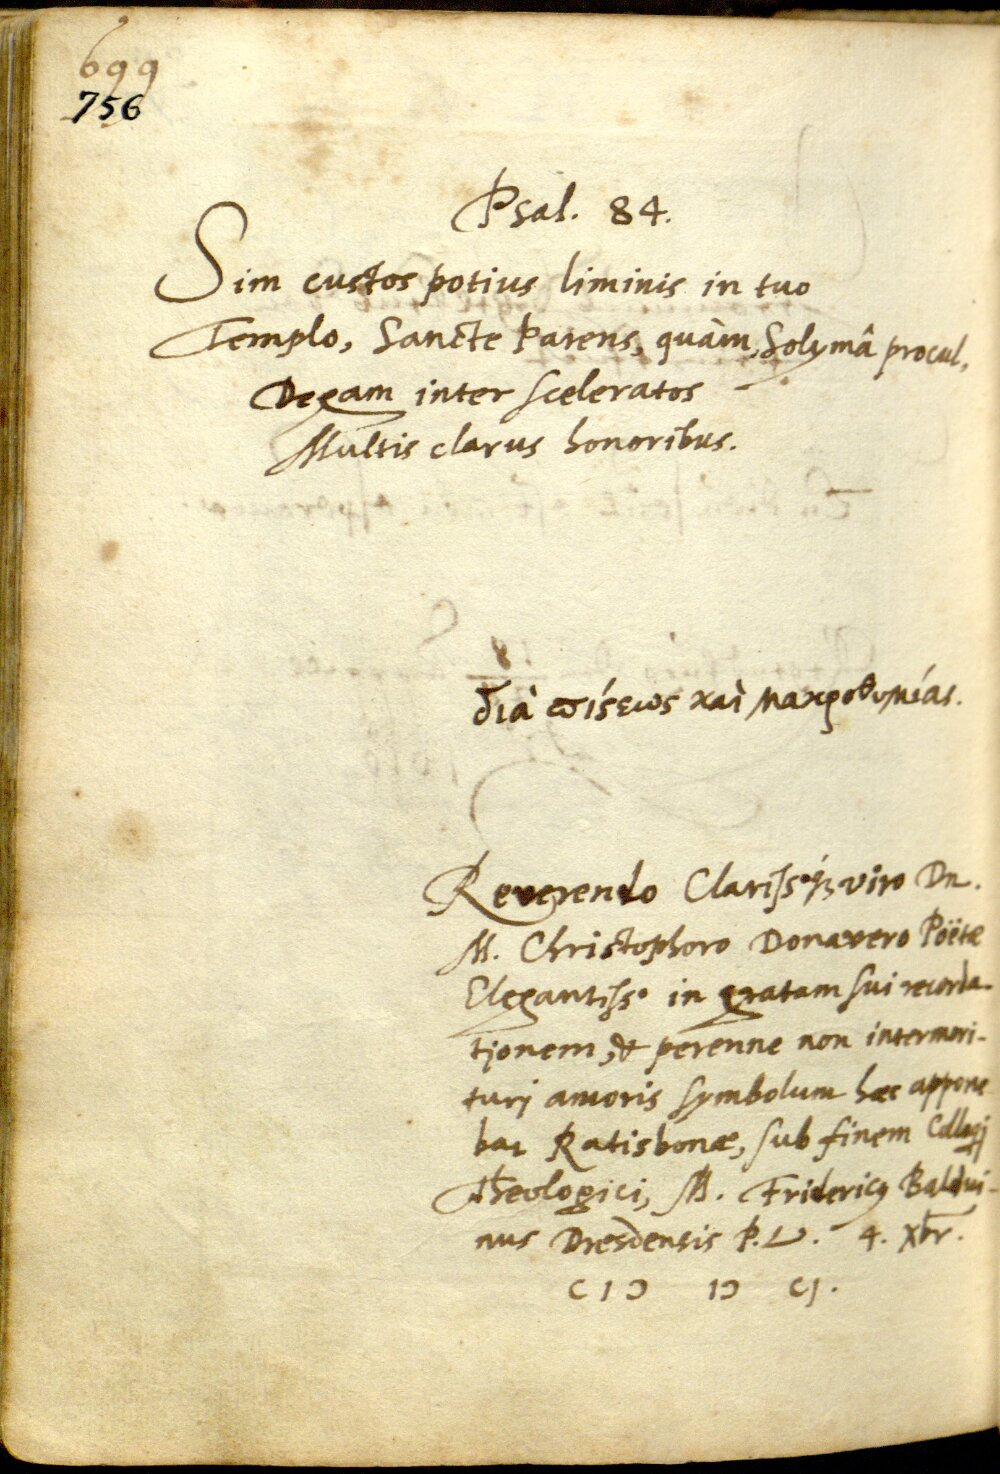 699
756
Psal. 84.
Sim custos potius liminis in tuo
Templo, Sancte Parens, quàm, Solymâ procul,
Degam inter sceleratos
Multis clarus honoribus.
διὰ πίστεως καὶ μακροθυμίας.
Reverendo Clariss.º q́ꝫ viro Dn.
M. Christophoro Donavero Poëtæ
Elegantiss.º in gratam sui recorda-
tjonem, & perenne non intermori-
turj amoris symbolum hæc appone
bat Ratisbonæ, sub finem Collogij
Theologici, M. Fridericꝰ Baldui-
nus Dresdensis P. L. 4. Xbr.
CIↃ IↃ CI.